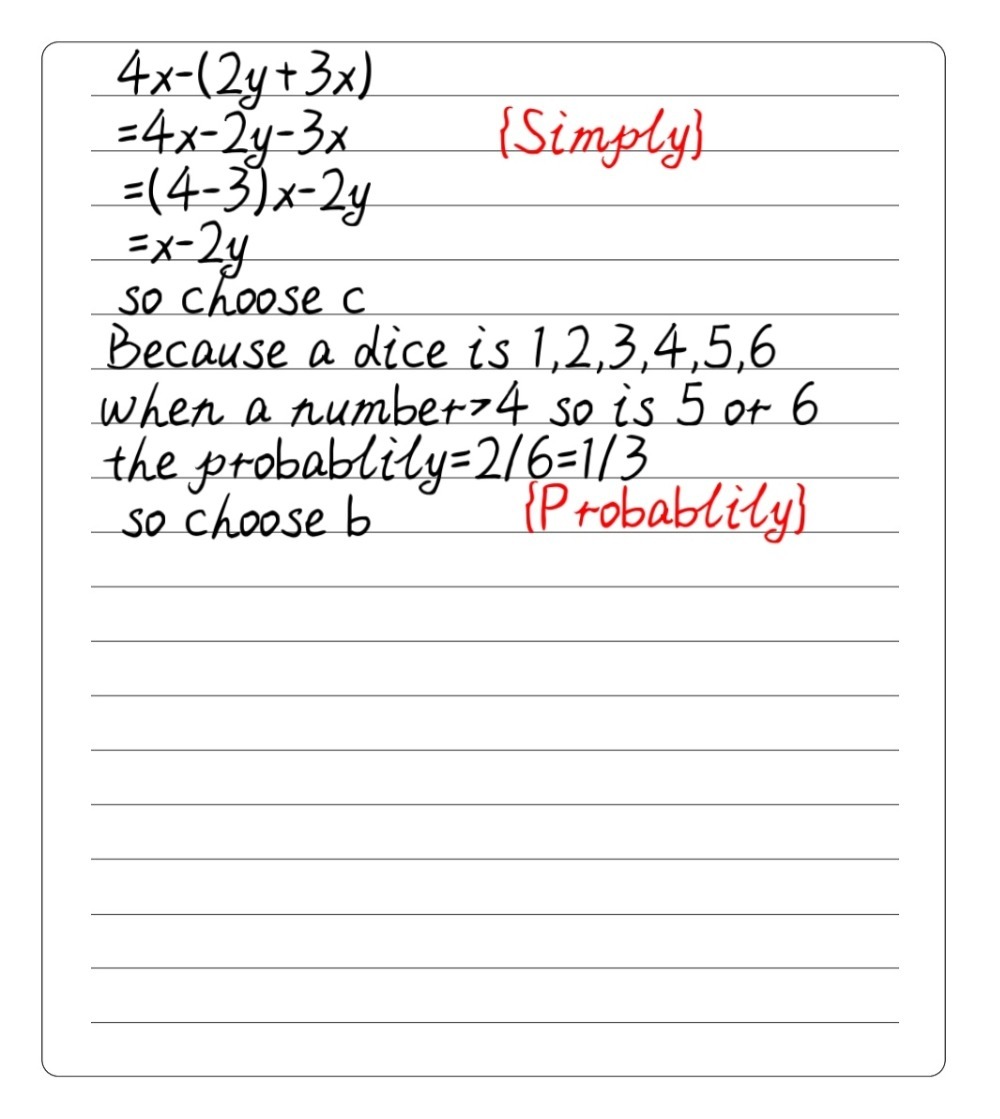 4x-(2y+3x)
=4x-2y-3x {Simply}
=(4-3)x-2y
=x-2y
so choose c
Because a dice is 1,2,3,4,5,6
when a number>4 so is 5 or 6
the probablily=2/6=1/3
so choose b {Probablily}